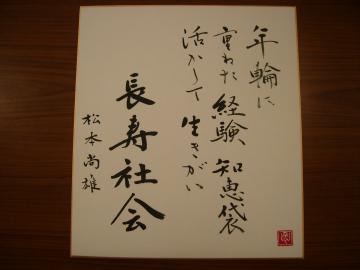 年輪に
重ねた経験知恵袋
活かして生きがい
長寿社会
松本尚雄